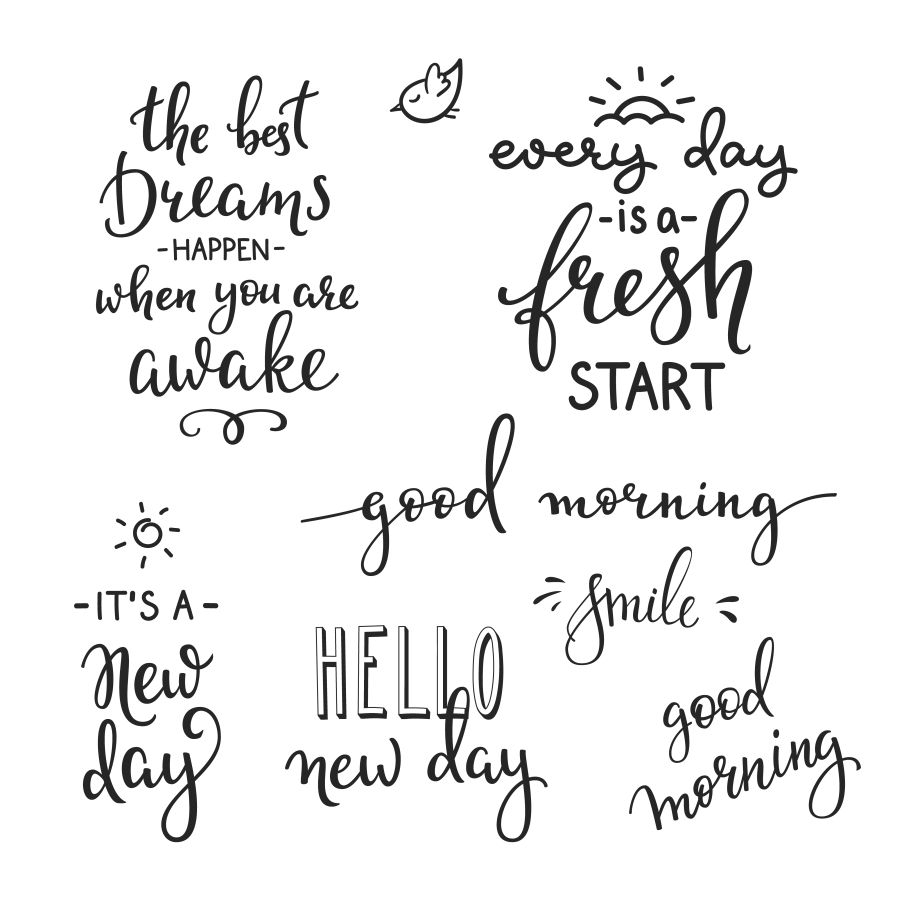 the best
Dreams
- HAPPEN -
when you are
awake
every day
- is a -
fresh
START
good morning
smile
- IT'S A -
New
day
HELLO
new day
good
morning